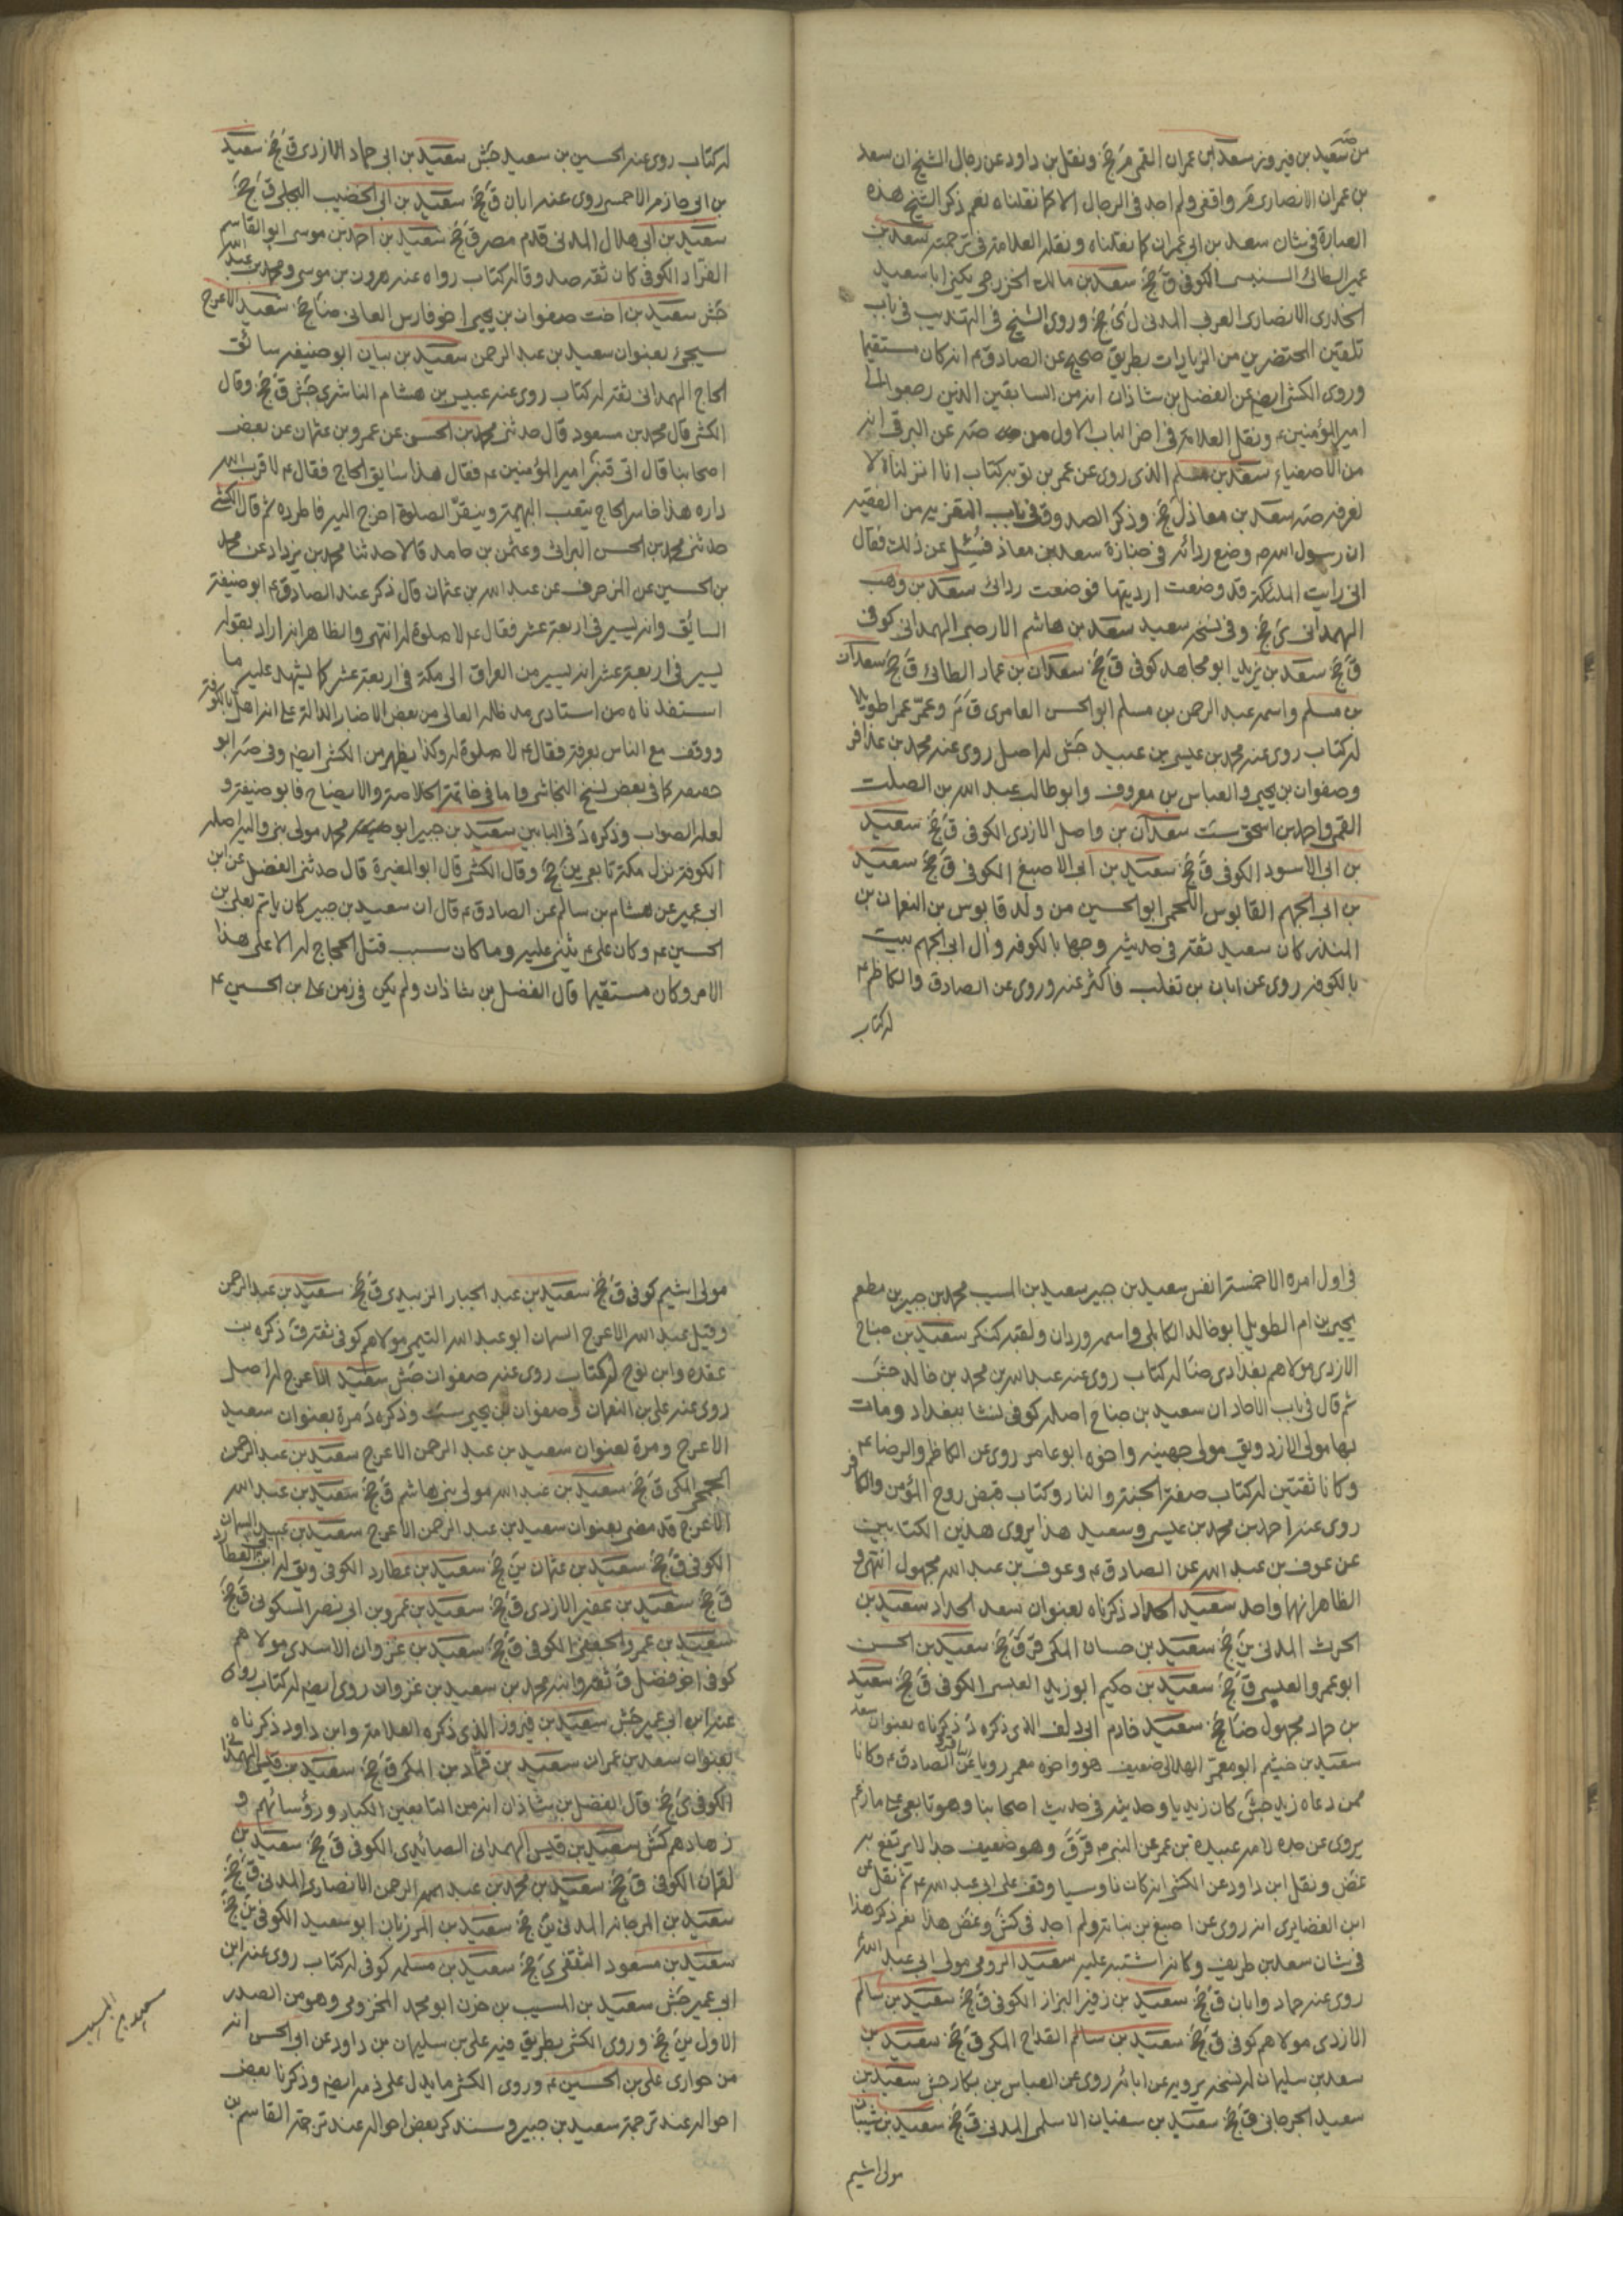 من صه سعيد بن فيروز سعد بن عمران القمى م جخ ونقل بن داود عن رجال الشيخ ان سعد
بن عمران الانصارى م واقفى ولم اجد فى الرجال الا كما نقلناه نعم ذكر الشيخ هذه
العبارة فى شان سعد بن ابى عمران كما نقلناه ونقله العلامة فى ترجمته سعد بن
عمير الطائى السنبسى الكوفى ق جخ سعد بن مالك الخزرجى يكنى ابا سعيد
الخدرى الانصارى العربى المدنى ل ى جخ وروى الشيخ فى التهذيب فى باب
تلقين المحتضرين من الزيارات بطريق صحيح عن الصادق ع انه كان مستقيما
وروى الكشى ايضا عن الفضل بن شاذان انه من السابقين الذين رجعوا الى
امير المؤمنين ع ونقل العلامة فى اخر الباب الاول من صه عن البرقى انه
من الاصفياء سعد بن مسلم الذى روى عن عمر بن توبه كتاب انا انزلناه لا
نعرفه صه سعد بن معاذ ل جخ وذكر الصدوق فى باب التعزيه من الفقيه
ان رسول الله ص وضع ردائه فى جنازة سعد بن معاذ فسئل عن ذلك فقال
انى رايت الملئكة قد وضعت ارديتها فوضعت ردائى سعد بن وهب
الهمدانى ى جخ وفى نسخه سعيد سعد بن هاشم الارحبى الهمدانى كوفى
ق جخ سعد بن يزيد ابو مجاهد كوفى ق جخ سعدان بن عمار الطائى ق جخ سعدان
بن مسلم واسمه عبد الرحمن بن مسلم ابو الحسن العامرى ق م وعمّر عمرا طويلا
له كتاب روى عنه محمد بن عيسى بن عبيد جش له اصل روى عنه محمد بن عذافر
وصفوان بن يحيى والعباس بن معروف وابو طالب عبد الله بن الصلت
القمى واحمد بن اسحق ست سعدان بن واصل الازدى الكوفى ق جخ سعيد
بن ابى الاسود الكوفى ق جخ سعيد بن ابى الاصبغ الكوفى ق جخ سعيد
بن ابى الجهم القابوسى اللخمى ابو الحسين من ولد قابوس بن النعمان بن
المنذر كان سعيد ثقة فى حديثه وجها بالكوفه وآل ابى الجهم بيت
بالكوفه روى عن ابان بن تغلب فاكثر عنه وروى عن الصادق والكاظم ع
له كتاب
له كتاب روى عنه الحسين بن سعيد جش سعيد بن ابى حماد الازدى ق جخ سعيد
بن ابى حازم الاحمسى روى عنه ابان ق جخ سعيد بن ابى الخضيب البجلى ق جخ
سعيد بن ابى هلال المدنى قدم مصر ق جخ سعيد بن احمد بن موسى ابو القاسم
الغراد الكوفى كان ثقه صد وقا له كتاب رواه عنه هرون بن موسى ومحمد بن عبد الله
جش سعيد بن اخت صفوان بن يحيى اخو فارس الغالى ضا جخ سعيد الاعرج
سيجئ بعنوان سعيد بن عبد الرحمن سعيد بن بيان ابو حنيفه سائق
الحاج الهمدانى ثقه له كتاب روى عنه عبيس بن هشام الناشرى جش ق جخ وقال
الكشى قال محمد بن مسعود قال حدثنى محمد بن الحسن عن عمرو بن عثمان عن بعض
اصحابنا قال اتى قنبر امير المؤمنين ع فقال هذا سابق الحاج فقال ع لا قرب الله
داره هذا خاسر الحاج يتعب البهيمة وينقر الصلوة اخرج اليه فاطرده ثم قال الكشى
حدثنى محمد بن الحسن البرانى وعثمن بن حامد قالا حدثنا محمد بن يزداد عن محمد
بن الحسين عن المزخرف عن عبد الله بن عثمان قال ذكر عند الصادق ع ابو حنيفة
السائق وانه يسير فى اربعة عشر فقال ع لا صلوة له انتهى والظاهر انه اراد بقوله
يسير فى اربعة عشر انه يسير من العراق الى مكة فى اربعة عشر كما يشهد عليه ما
استفدناه من استادى مد ظله العالى من بعض الاخبار الدالة على انه اهل بالكوفة
ووقف مع الناس بعرفة فقال ع لا صلوة له وكذا يظهر من الكشى ايضا وفى صه ابو
جعفر كما فى بعض نسخ النجاشى واما فى خاتمة الخلاصة والايضاح فابو حنيفة و
لعله الصواب وذكره د فى البابين سعيد بن جبير ابو محمد مولى بنى والبه اصله
الكوفة نزل مكة تابعى ين جخ وقال الكشى قال ابو المغيرة قال حدثنى الفضل عن ابن
ابى عمير عن هشام بن سالم عن الصادق ع قال ان سعيد بن جبير كان ياتم بعلى بن
الحسين ع وكان على ع يثنى عليه وما كان سبب قتل الحجاج له الا على هذا
الامر وكان مستقيما قال الفضل بن شاذان ولم يكن فى زمن على بن الحسين ع
فى اول امره الا خمسة انفس سعيد بن جبير سعيد بن المسيب محمد بن جبير بن مطعم
يحيى بن ام الطويل ابو خالد الكابلى واسمه وردان ولقبه كنكر سعيد بن جناح
الازدى مولاهم بغدادى ضا له كتاب روى عنه عبد الله بن محمد بن خالد جش
ثم قال فى باب الاحاد ان سعيد بن جناح اصله كوفى نشا ببغداد ومات
بها مولى الازد ويق مولى جهينه واخوه ابو عامر روى عن الكاظم والرضا ع
وكانا ثقتين له كتاب صفة الجنة والنار وكتاب قبض روح المؤمن والكافر
روى عنه احمد بن محمد بن عيسى وسعيد هذا يروى هذين الكتابين
عن عوف بن عبد الله عن الصادق ع وعوف بن عبد الله مجهول انتهى و
الظاهر انهما واحد سعيد الحداد ذكرناه بعنوان سعد الحداد سعيد بن
الحرث المدنى ين جخ سعيد بن حسان المكى قر ق جخ سعيد بن الحسن
ابو عمرو العبسى ق جخ سعيد بن حكيم ابو زيد العبسى الكوفى ق جخ سعيد
بن حماد مجهول ضا جخ سعيد خادم ابى دلف الذى ذكره د ذكرناه بعنوان سعد
سعيد بن خيثم ابو معمر الهلالى ضعيف هو واخوه معمر رويا عن الباقر والصادق ع وكانا
من دعاة زيد جش كان زيديا وحديثه فى حديث اصحابنا وهو تابعى على ما زعم
يروى عن جده لامه عبيدة بن عمر عن النبى ص قر ق وهو ضعيف جدا لا يرتفع به
غض ونقل ابن داود عن الكشى انه كان ناوسيا وقف على ابى عبد الله ع ثم نقل عن
ابن الغضايرى انه روى عن اصبغ بن نباته ولم اجد فى كش وغض هذا نعم ذكر هذا
فى شان سعد بن طريف وكانه اشتبه عليه سعيد الرومى مولى ابى عبد الله
روى عنه حماد وابان ق جخ سعيد بن زفير البزاز الكوفى ق جخ سعيد بن سالم
الازدى مولاهم كوفى ق جخ سعيد بن سالم القداح المكى ق جخ سعيد بن
سعد بن سليمان له نسخه يرويه عن ابائه روى عن العباس بن بكار جش سعيد بن
سعيد الجرجانى ق جخ سعيد بن سفيان الاسلمى المدنى ق جخ سعيد بن شيبان
مولى اشيم
مولى اشيم كوفى ق جخ سعيد بن عبد الجبار الزبيدى ق جخ سعيد بن عبد الرحمن
وقيل عبد الله الاعرج السمان ابو عبد الله التيمى مولاهم كوفى ثقة ق ذكره بن
عقده وابن نوح له كتاب روى عنه صفوان جش سعيد الاعرج له اصل
روى عنه على بن النعمان وصفوان بن يحيى ست وذكره د مرة بعنوان سعيد
الاعرج ومرة بعنوان سعيد بن عبد الرحمن الاعرج سعيد بن عبد الرحمن
الجمحى المكى ق جخ سعيد بن عبد الله مولى بنى هاشم ق جخ سعيد بن عبد الله
الاعرج قد مضى بعنوان سعيد بن عبد الرحمن الاعرج سعيد بن عبيد السمان
الكوفى ق جخ سعيد بن عثمان ين جخ سعيد بن عطارد الكوفى ويق له ابن ابى العطارد
ق جخ سعيد بن عفير الازدى ق جخ سعيد بن عمرو بن ابى نصر السكونى ق جخ
سعيد بن عمرو الجعفى الكوفى ق جخ سعيد بن غزوان الاسدى مولاهم
كوفى اخو فضل ق ثقه وابنه محمد بن سعيد بن غزوان روى ايضا له كتاب رواه
عنه ابن ابى عمير جش سعيد بن فيروز الذى ذكره العلامة وابن داود ذكرناه
بعنوان سعد بن عمران سعيد بن قماد بن المكى ق جخ سعيد بن قيس الهمدانى
الكوفى ى جخ قال الفضل بن شاذان انه من التابعين الكبار ورؤسائهم و
زهادهم كش سعيد بن قيس الهمدانى الصائدى الكوفى ق جخ سعيد بن
لقمان الكوفى ق جخ سعيد بن محمد بن عبد الرحمن الانصارى المدنى ق جخ
سعيد بن المرجانه المدنى ين جخ سعيد بن المرزبان ابو سعيد الكوفى ين جخ
سعيد بن مسعود الثقفى ى جخ سعيد بن مسلمه كوفى له كتاب روى عنه ابن
ابى عمير جش سعيد بن المسيب بن حزن ابو محمد المخزومى وهو من الصدر
الاول ين جخ وروى الكشى بطريق فيه على بن سليمان بن داود عن ابو الحسن انه
من حوارى على بن الحسين ع وروى الكشى ما يدل على ذمه ايضا وذكرنا بعض
احواله عند ترجمة سعيد بن جبير وسنذكر بعض احواله عند ترجمة القاسم بن
سعيد بن المسيب